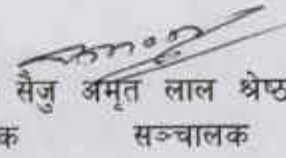 सैजु अमृत लाल श्रेष्ठ
क सञ्चालक